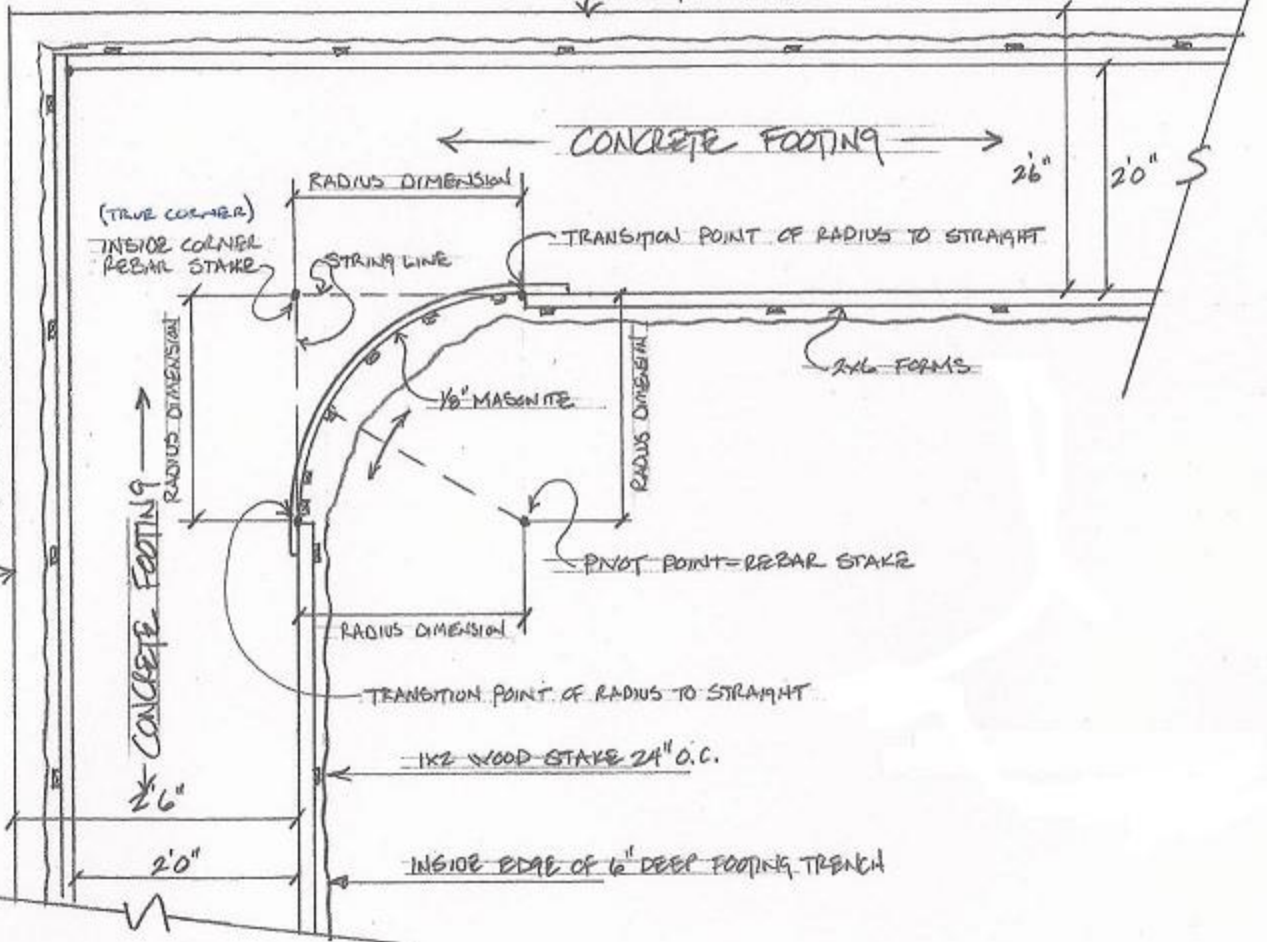 ← CONCRETE FOOTING →
2'6"
2'0"
RADIUS DIMENSION
(TRUE CORNER)
INSIDE CORNER
REBAR STAKE
STRING LINE
TRANSITION POINT OF RADIUS TO STRAIGHT
RADIUS DIMENSION
1/8" MASONITE
RADIUS DIMENSION
2X6 FORMS
← CONCRETE FOOTING →
PIVOT POINT=REBAR STAKE
RADIUS DIMENSION
TRANSITION POINT OF RADIUS TO STRAIGHT
1X2 WOOD STAKE 24" O.C.
2'6"
2'0"
INSIDE EDGE OF 6" DEEP FOOTING TRENCH